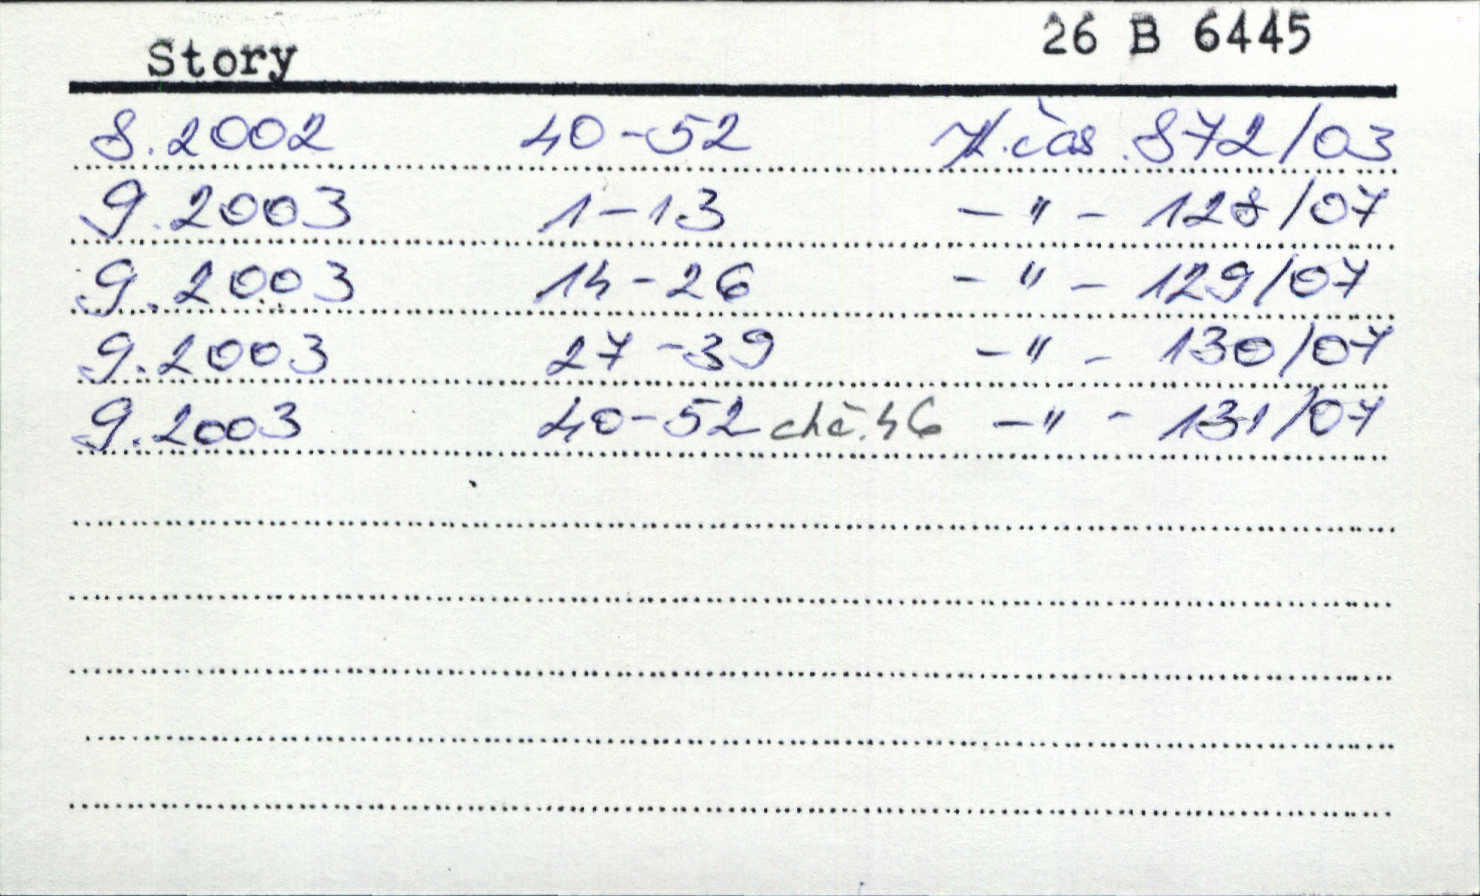 Story 26 B 6445
8.2002 40-52 Zl.čas. 872/03
9.2003 1-13 -"- 128/07
9.2003 14-26 -"- 129/07
9.2003 27-39 -"- 130/07
9.2003 40-52 chč.46 -"- 131/07